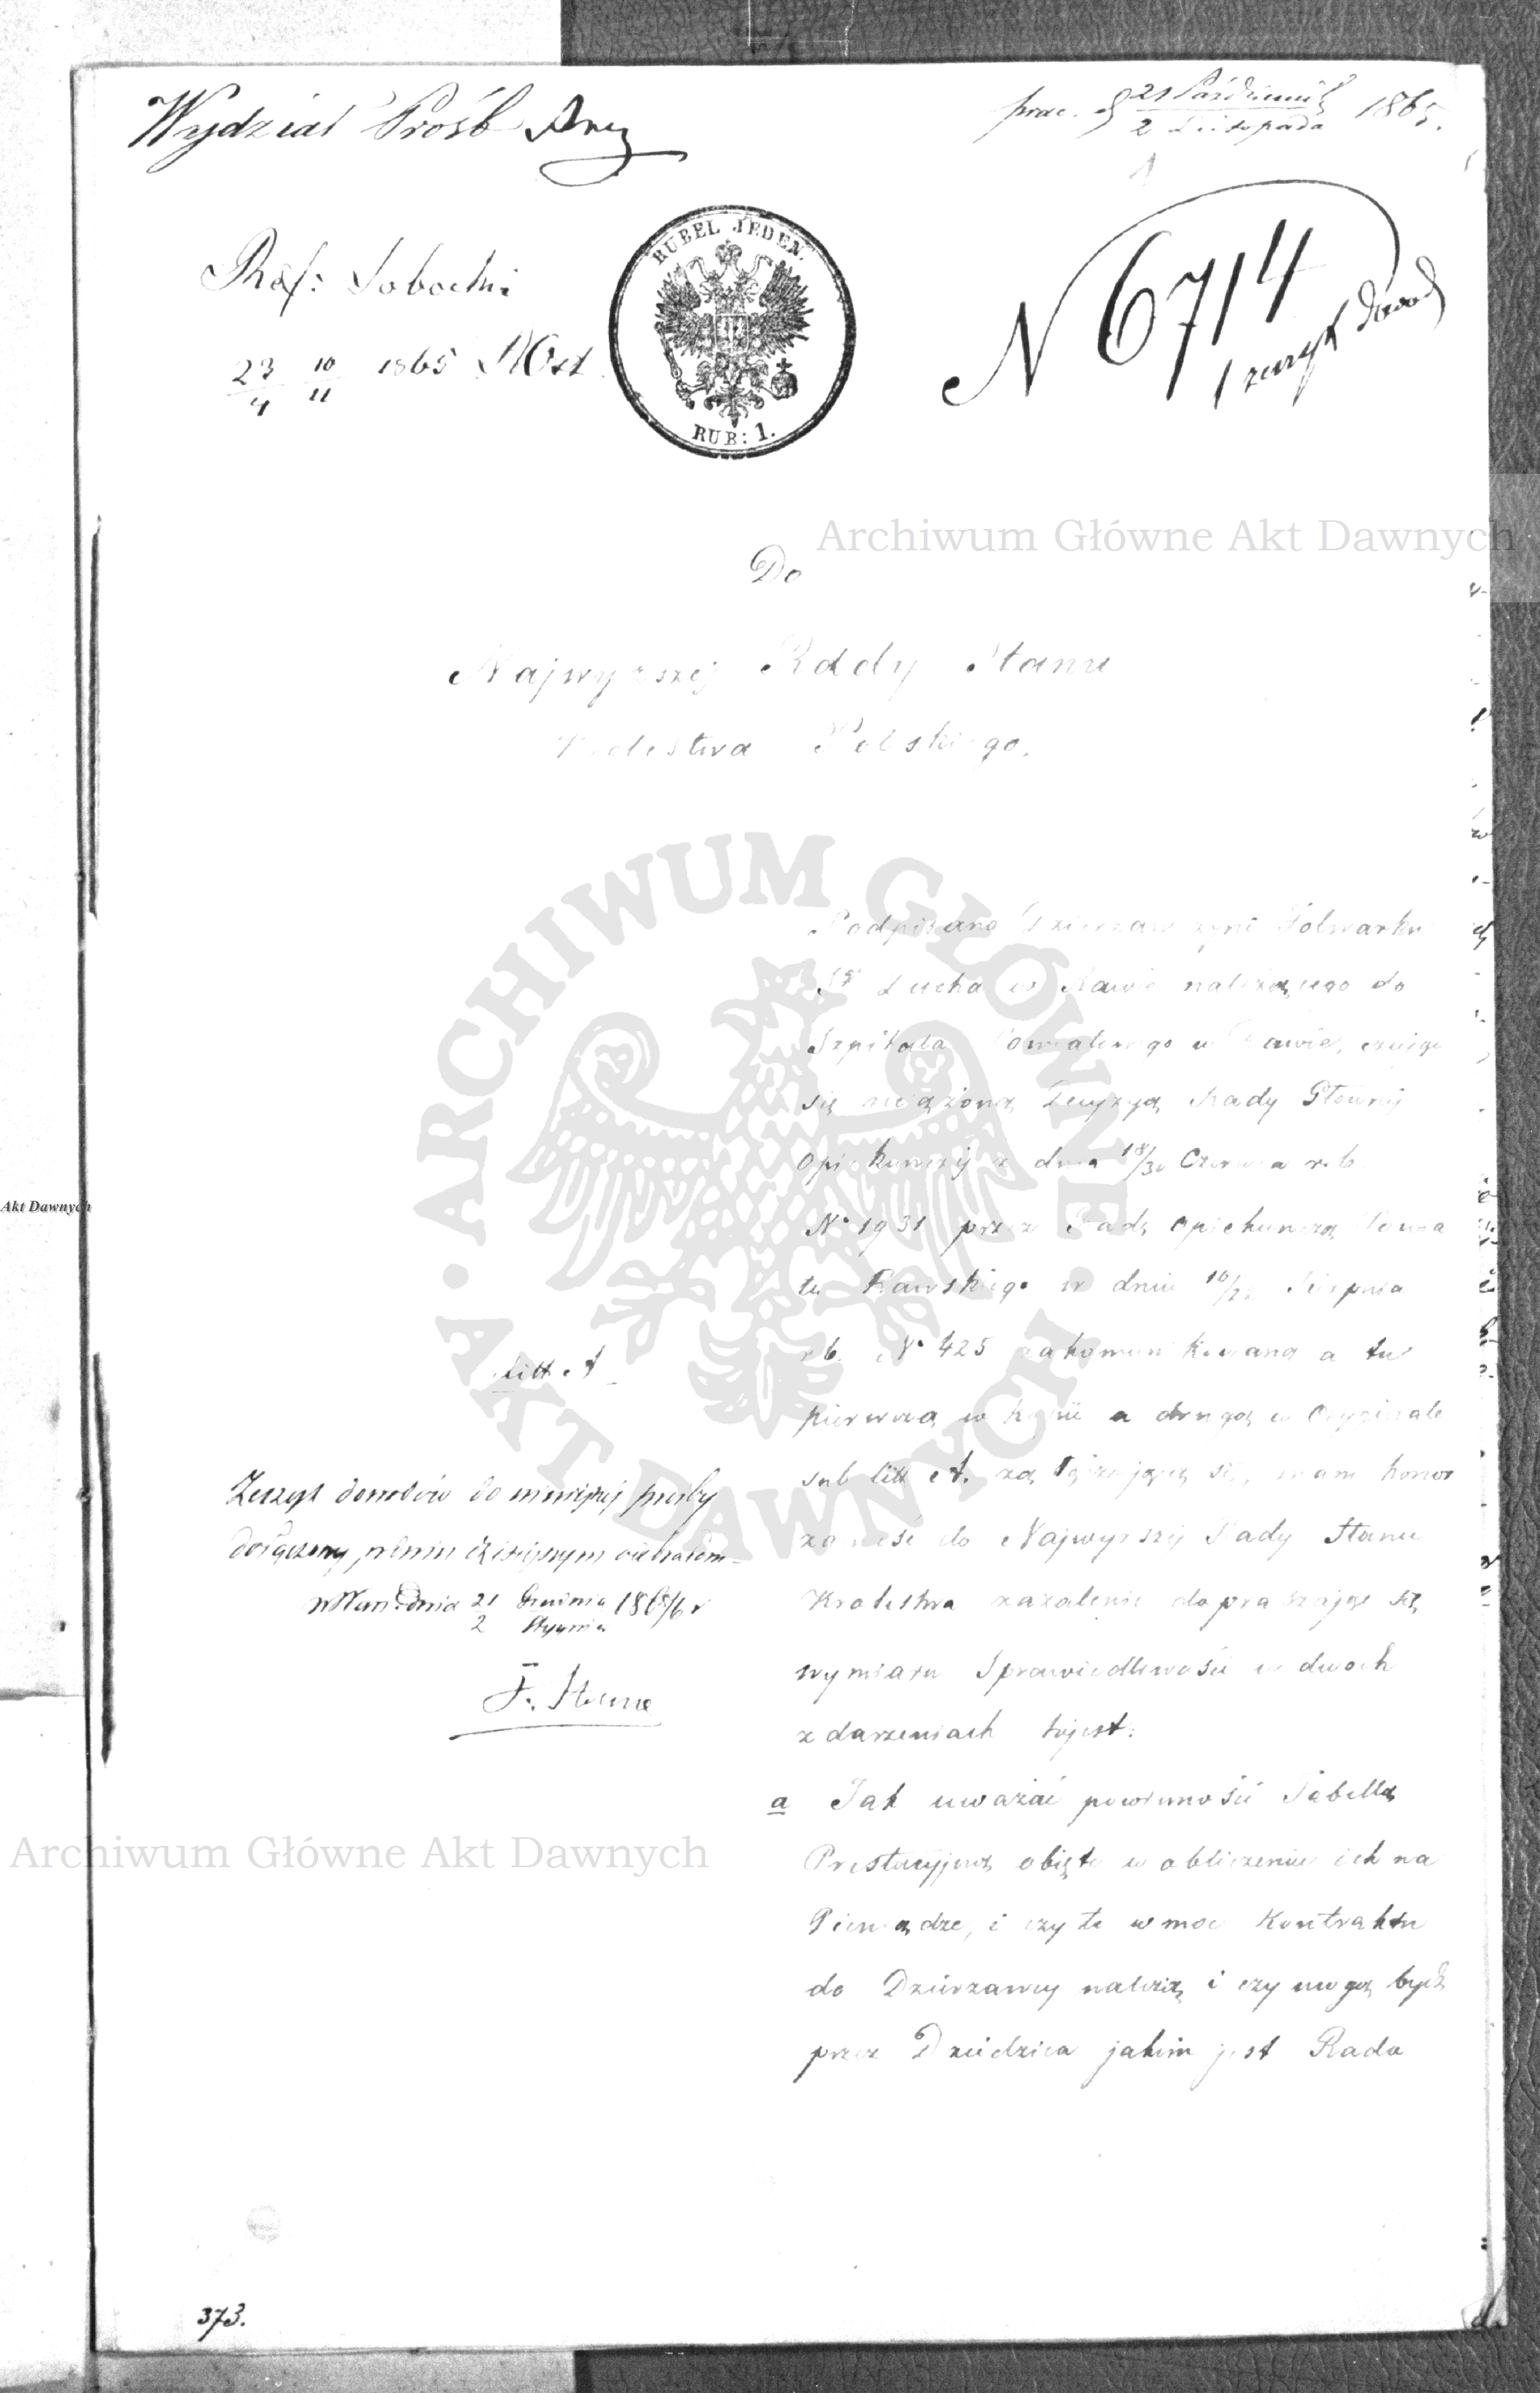 Wydział Próśb
prae. d 21 Października 1865.
2 Listopada
1
Ref: Sobocki
23/4 10/11 1865
RUBEL JEDEN.
RUB: 1.
N 6714
1 zeszyt dowod
Archiwum Główne Akt Dawnych
Do
Najwyższej Rady Stanu
Królestwa Polskiego.
ARCHIWUM GŁÓWNE AKT DAWNYCH
Podpisana Dzierzawczyni Folwarku
Sgo Ducha w Rawie należącego do
Szpitala Powiatowego w Rawie, czując
się Decyzyą Rady Głownej
Opiekunczej z dnia 18/30 Czerwca r. b.
No 1931 przez Radę Opiekunczą Powia
tu Rawskiego w dniu 10/22 Sierpnia
r b. No 425 zakomunikowaną a tu
pierwszą w kopii a drugą w Oryginale
sub litt A. załączającą się, mam honor
zanieść do Najwyzszej Rady Stanu
Krolestwa zażalenie dopraszając się
wymiaru Sprawiedliwości w dwoch
zdarzeniach tojest:
a Jak uważać powinności Tabellą
Prestacyjną objęte w obliczeniu ich na
Pieniądze, i czy te w moc Kontraktu
do Dzierzawcy należą i czy mogą bydź
przez Dziedzica jakim jest Rada
Litt A
Zeszyt dowodów do niniejszej prosby
dołączony, w dniu dzisiejszym odebrałem
w Warsz. dnia 21 Grudnia 1865/6 r
2 Stycznia
Akt Dawnych
Archiwum Główne Akt Dawnych
373.